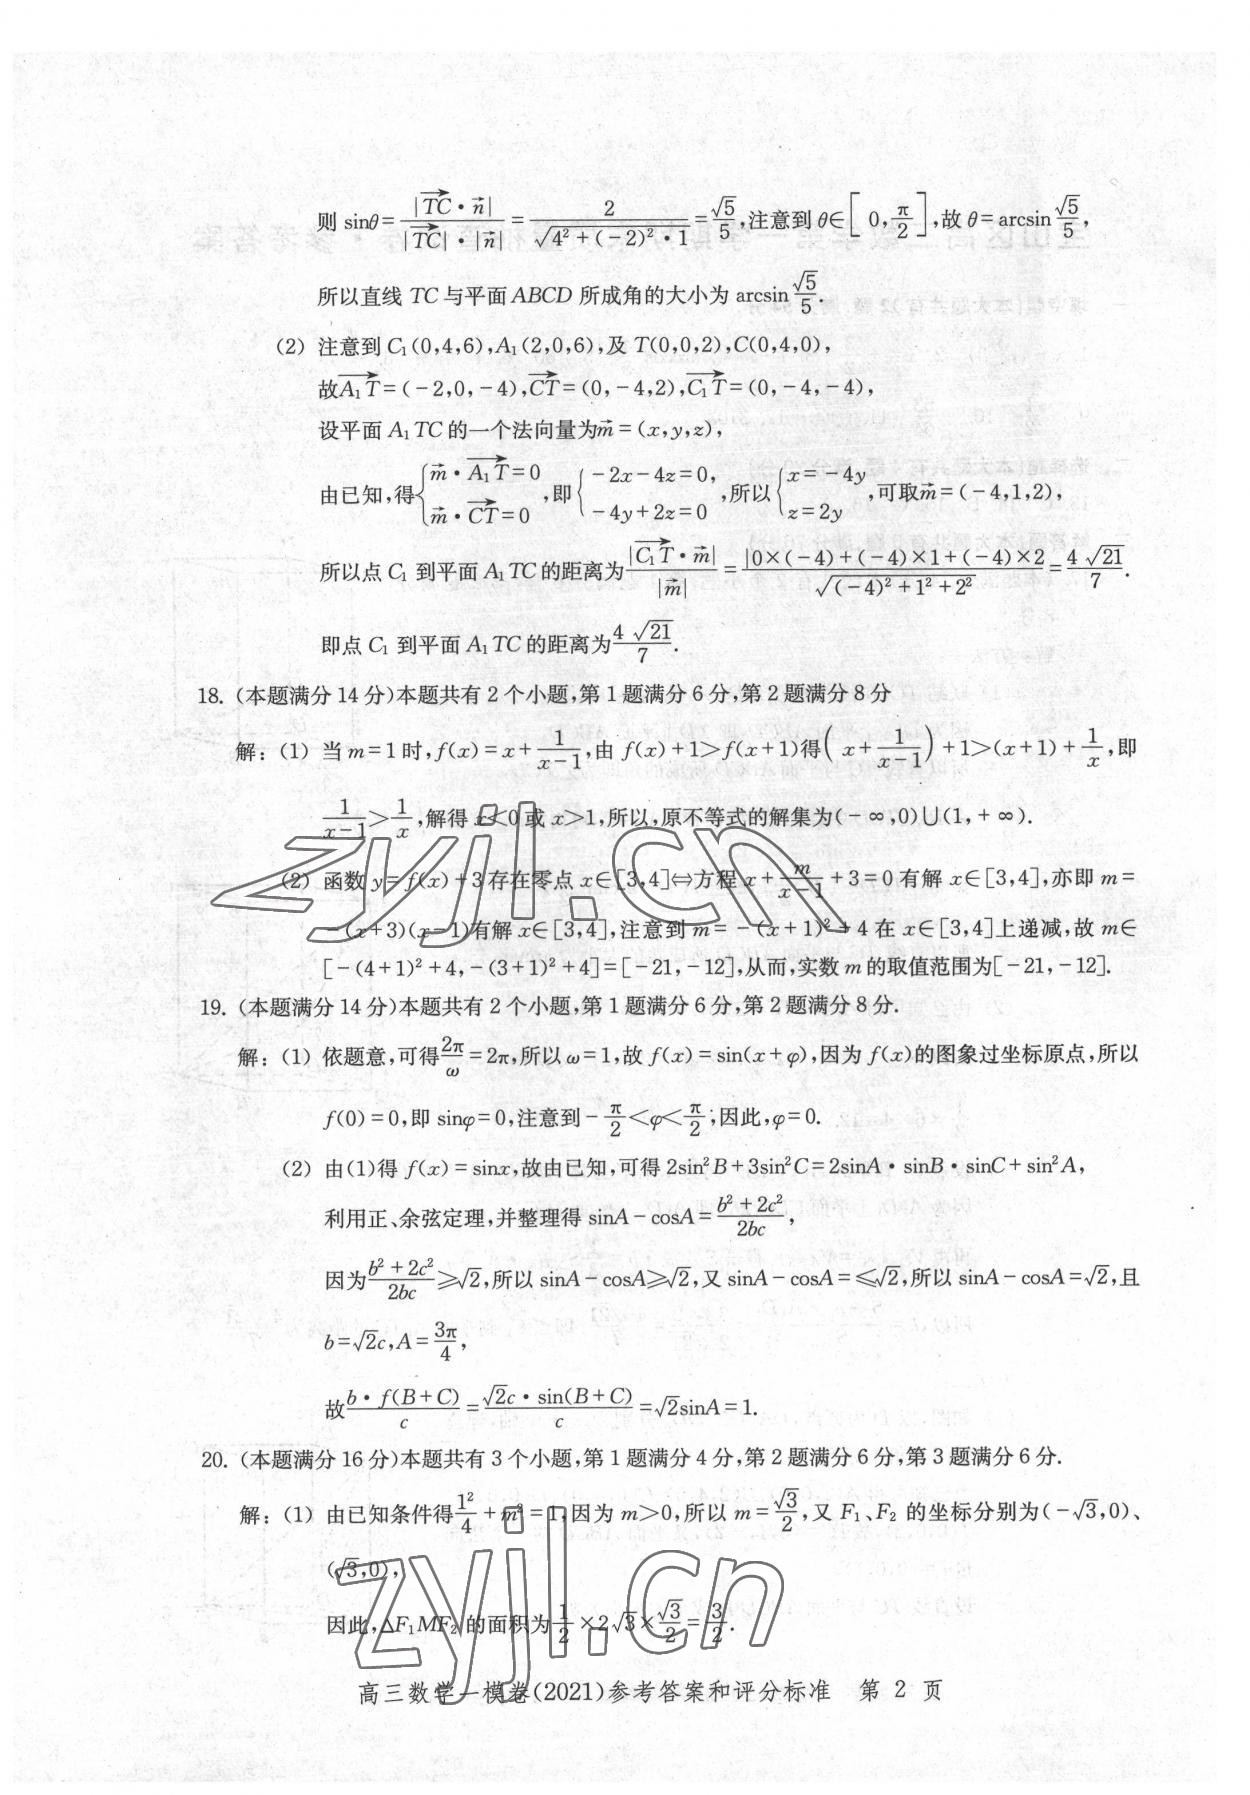 则 sinθ=|TC·n⃗|/(|TC|·|n⃗|)=2/(√(4²+(-2)²)·1)=√5/5,注意到 θ∈[0,π/2],故 θ=arcsin √5/5,
所以直线 TC 与平面 ABCD 所成角的大小为 arcsin √5/5.
(2) 注意到 C₁(0,4,6),A₁(2,0,6),及 T(0,0,2),C(0,4,0),
故A₁T=(-2,0,-4),CT=(0,-4,2),C₁T=(0,-4,-4),
设平面 A₁TC 的一个法向量为m⃗=(x,y,z),
由已知,得{m⃗·A₁T=0 m⃗·CT=0,即{-2x-4z=0, -4y+2z=0,所以{x=-4y z=2y,可取m⃗=(-4,1,2),
所以点 C₁ 到平面 A₁TC 的距离为|C₁T·m⃗|/|m⃗|=|0×(-4)+(-4)×1+(-4)×2/√((-4)²+1²+2²)=4√21/7.
即点 C₁ 到平面 A₁TC 的距离为4√21/7.
18. (本题满分 14 分)本题共有 2 个小题,第 1 题满分 6 分,第 2 题满分 8 分
解: (1) 当 m=1 时,f(x)=x+1/(x-1),由 f(x)+1>f(x+1)得(x+1/(x-1))+1>(x+1)+1/x,即
1/(x-1)>1/x,解得 x<0 或 x>1,所以,原不等式的解集为(-∞,0)∪(1,+∞).
(2) 函数 y=f(x)+3 存在零点 x∈[3,4]⇔方程 x+m/(x-1)+3=0 有解 x∈[3,4],亦即 m=
-(x+3)(x-1)有解 x∈[3,4],注意到 m=-(x+1)²+4 在 x∈[3,4]上递减,故 m∈
[-(4+1)²+4,-(3+1)²+4]=[-21,-12],从而,实数 m 的取值范围为[-21,-12].
19. (本题满分 14 分)本题共有 2 个小题,第 1 题满分 6 分,第 2 题满分 8 分.
解: (1) 依题意,可得2π/ω=2π,所以 ω=1,故 f(x)=sin(x+φ),因为 f(x)的图象过坐标原点,所以
f(0)=0,即 sinφ=0,注意到-π/2<φ<π/2,因此,φ=0.
(2) 由(1)得 f(x)=sinx,故由已知,可得 2sin²B+3sin²C=2sinA·sinB·sinC+sin²A,
利用正、余弦定理,并整理得 sinA-cosA=(b²+2c²)/2bc,
因为(b²+2c²)/2bc≥√2,所以 sinA-cosA≥√2,又 sinA-cosA=≤√2,所以 sinA-cosA=√2,且
b=√2c,A=3π/4,
故b·f(B+C)/c=√2c·sin(B+C)/c=√2sinA=1.
20. (本题满分 16 分)本题共有 3 个小题,第 1 题满分 4 分,第 2 题满分 6 分,第 3 题满分 6 分.
解: (1) 由已知条件得1²/4+m²=1,因为 m>0,所以 m=√3/2,又 F₁、F₂ 的坐标分别为(-√3,0)、
(√3,0),
因此,△F₁MF₂的面积为1/2×2√3×√3/2=3/2.
高三数学一模卷(2021)参考答案和评分标准 第 2 页
zyjl.cn
zyjl.cn